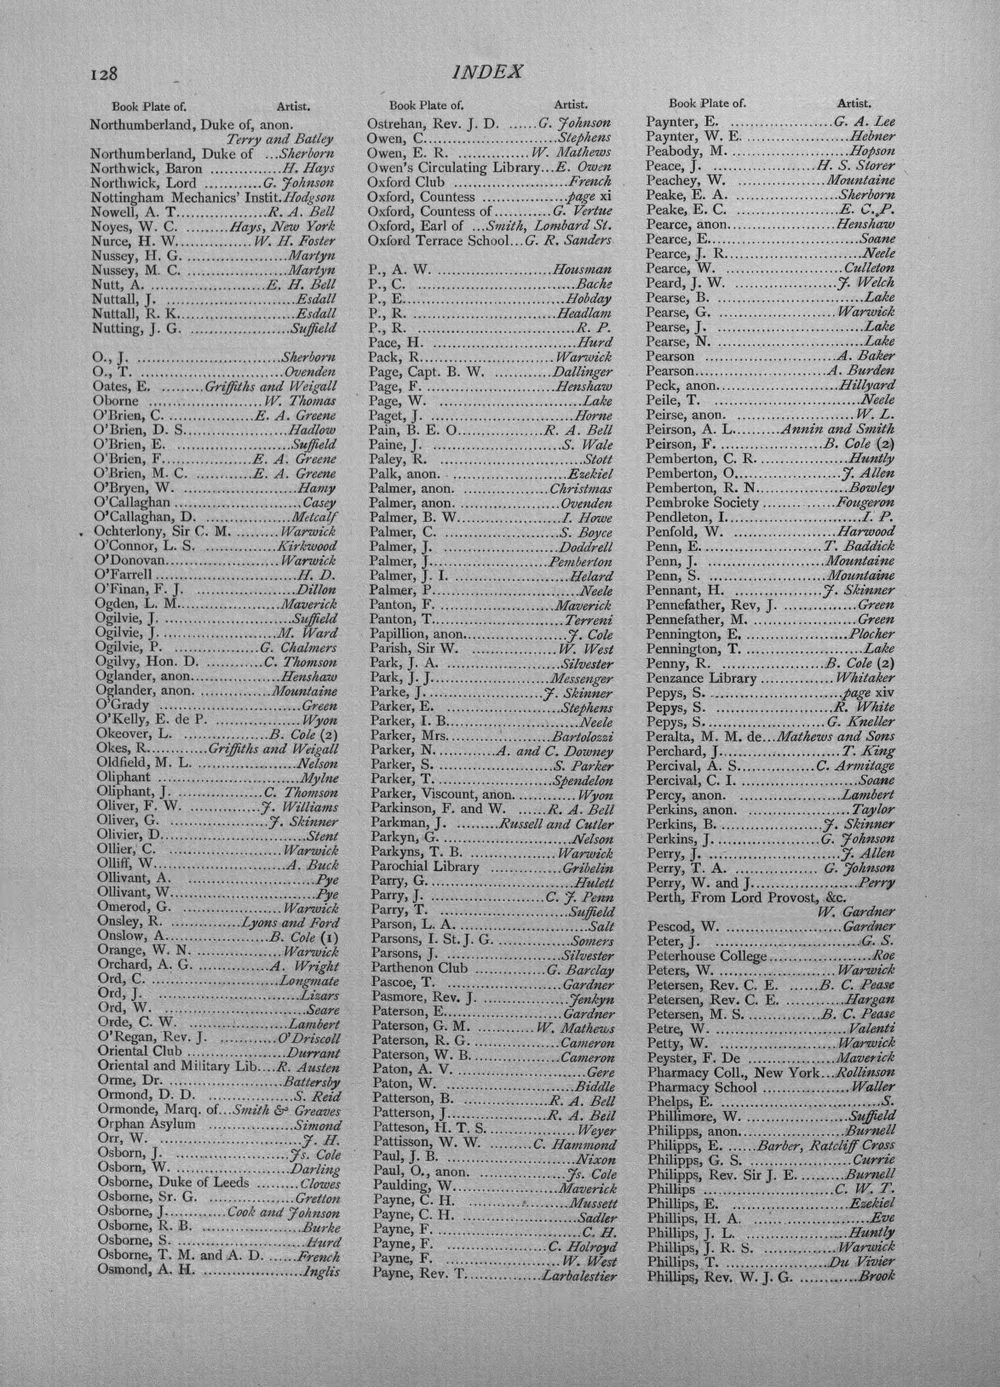 128
INDEX
Book Plate of. Artist.
Northumberland, Duke of, anon.
Terry and Batley
Northumberland, Duke of ...Sherborn
Northwick, Baron ...............H. Hays
Northwick, Lord ............G. Johnson
Nottingham Mechanics' Instit.Hodgson
Nowell, A. T...................R. A. Bell
Noyes, W. C. .........Hays, New York
Nurce, H. W...............W. H. Foster
Nussey, H. G. .....................Martyn
Nussey, M. C. .....................Martyn
Nutt, A. .........................E. H. Bell
Nuttall, J. ...........................Esdall
Nuttall, R. K........................Esdall
Nutting, J. G. .....................Suffield
O., J. ..............................Sherborn
O., T. ..............................Ovenden
Oates, E. .........Griffiths and Weigall
Oborne ........................W. Thomas
O'Brien, C. ..................E. A. Greene
O'Brien, D. S......................Hadlow
O'Brien, E. ........................Suffield
O'Brien, F...................E. A. Greene
O'Brien, M. C. ............E. A. Greene
O'Bryen, W. ........................Hamy
O'Callaghan ...........................Casey
O'Callaghan, D. ..................Metcalf
Ochterlony, Sir C. M. .........Warwick
O'Connor, L. S. ...............Kirkwood
O'Donovan........................Warwick
O'Farrell ..............................H. D.
O'Finan, F. J. ........................Dillon
Ogden, L. M......................Maverick
Ogilvie, J. ...........................Suffield
Ogilvie, J. ........................M. Ward
Ogilvie, P. .....................G. Chalmers
Ogilvy, Hon. D. ............C. Thomson
Oglander, anon...................Henshaw
Oglander, anon. ...............Mountaine
O'Grady ..............................Green
O'Kelly, E. de P. ..................Wyon
Okeover, L. ..................B. Cole (2)
Okes, R............Griffiths and Weigall
Oldfield, M. L. .....................Nelson
Oliphant ..............................Mylne
Oliphant, J. ..................C. Thomson
Oliver, F. W. ...............J. Williams
Oliver, G. .....................J. Skinner
Olivier, D..............................Stent
Ollier, C. ........................Warwick
Olliff, W...........................A. Buck
Ollivant, A. ...........................Pye
Ollivant, W..............................Pye
Omerod, G. .....................Warwick
Onsley, R. ...............Lyons and Ford
Onslow, A.....................B. Cole (1)
Orange, W. N. ..................Warwick
Orchard, A. G. ...............A. Wright
Ord, C. ...........................Longmate
Ord, J. .................................Lizars
Ord, W. .................................Seare
Orde, C. W. .....................Lambert
O'Regan, Rev. J. ............O'Driscoll
Oriental Club .....................Durrant
Oriental and Military Lib....R. Austen
Orme, Dr. ........................Battersby
Ormond, D. D. ..................S. Reid
Ormonde, Marq. of...Smith & Greaves
Orphan Asylum ..................Simond
Orr, W. ..............................J. H.
Osborn, J. ........................Js. Cole
Osborn, W. ........................Darling
Osborne, Duke of Leeds .........Clowes
Osborne, Sr. G. ..................Gretton
Osborne, J............Cook and Johnson
Osborne, R. B. .....................Burke
Osborne, S. ...........................Hurd
Osborne, T. M. and A. D. ......French
Osmond, A. H. .....................Inglis
Book Plate of. Artist.
Ostrehan, Rev. J. D. ......G. Johnson
Owen, C...........................Stephens
Owen, E. R. ...............W. Mathews
Owen's Circulating Library...E. Owen
Oxford Club ........................French
Oxford, Countess ..................page xi
Oxford, Countess of............G. Vertue
Oxford, Earl of ...Smith, Lombard St.
Oxford Terrace School...G. R. Sanders
P., A. W. ........................Housman
P., C. .................................Bache
P., E.................................Hobday
P., R. ..............................Headlam
P., R. .................................R. P.
Pace, H. ..............................Hurd
Pack, R...........................Warwick
Page, Capt. B. W. ............Dallinger
Page, F. ........................Henshaw
Page, W. ..............................Lake
Paget, J. ..............................Horne
Pain, B. E. O..................R. A. Bell
Paine, J. ...........................S. Wale
Paley, R. ..............................Stott
Palk, anon. ........................Ezekiel
Palmer, anon. ..................Christmas
Palmer, anon. .....................Ovenden
Palmer, B. W.....................I. Howe
Palmer, C. ........................S. Boyce
Palmer, J. ........................Doddrell
Palmer, J........................Pemberton
Palmer, J. I. ........................Helard
Palmer, P..............................Neele
Panton, F. ........................Maverick
Panton, T...........................Terreni
Papillion, anon...................J. Cole
Parish, Sir W. ..................W. West
Park, J. A. ........................Silvester
Park, J. J........................Messenger
Parke, J. ........................J. Skinner
Parker, E. ........................Stephens
Parker, I. B...........................Neele
Parker, Mrs. .....................Bartolozzi
Parker, N. .........A. and C. Downey
Parker, S. ........................S. Parker
Parker, T. ........................Spendelon
Parker, Viscount, anon............Wyon
Parkinson, F. and W. ......R. A. Bell
Parkman, J. .........Russell and Cutler
Parkyn, G. ...........................Nelson
Parkyns, T. B. ..................Warwick
Parochial Library ...............Gribelin
Parry, G..............................Hulett
Parry, J. ........................C. J. Penn
Parry, T. ...........................Suffield
Parson, L. A. ...........................Salt
Parsons, I. St. J. G. ...............Somers
Parsons, J. ........................Silvester
Parthenon Club ...............G. Barclay
Pascoe, T. ........................Gardner
Pasmore, Rev. J. ..................Jenkyn
Paterson, E........................Gardner
Paterson, G. M. ............W. Mathews
Paterson, R. G. ..................Cameron
Paterson, W. B...................Cameron
Paton, A. V. ...........................Gere
Paton, W. ...........................Biddle
Patterson, B. ..................R. A. Bell
Patterson, J.....................R. A. Bell
Patteson, H. T. S...................Weyer
Pattisson, W. W. .........C. Hammond
Paul, J. B. ...........................Nixon
Paul, O., anon. ..................Js. Cole
Paulding, W.....................Maverick
Payne, C. H. .....................Mussett
Payne, C. H. ........................Sadler
Payne, F. ..............................C. H.
Payne, F. .....................C. Holroyd
Payne, F. ........................W. West
Payne, Rev. T...............Larbalestier
Book Plate of. Artist.
Paynter, E. .....................G. A. Lee
Paynter, W. E. .....................Hebner
Peabody, M. ........................Hopson
Peace, J. .....................H. S. Storer
Peachey, W. ..................Mountaine
Peake, E. A. .....................Sherborn
Peake, E. C. .....................E. C. P.
Pearce, anon......................Henshaw
Pearce, E..............................Soane
Pearce, J. R...........................Neele
Pearce, W. ........................Culleton
Peard, J. W. .....................J. Welch
Pearse, B. ..............................Lake
Pearse, G. ........................Warwick
Pearse, J. ..............................Lake
Pearse, N. ..............................Lake
Pearson ........................A. Baker
Pearson...........................A. Burden
Peck, anon........................Hillyard
Peile, T. ..............................Neele
Peirse, anon. ........................W. L.
Peirson, A. L.........Annin and Smith
Peirson, F. .....................B. Cole (2)
Pemberton, C. R. ..................Huntly
Pemberton, O.....................J. Allen
Pemberton, R. N...................Bowley
Pembroke Society ...............Fougeron
Pendleton, I...........................I. P.
Penfold, W. .....................Harwood
Penn, E. .....................T. Baddick
Penn, J. ........................Mountaine
Penn, S. ........................Mountaine
Pennant, H. ..................J. Skinner
Pennefather, Rev, J. ...............Green
Pennefather, M. .....................Green
Pennington, E. .....................Plocher
Pennington, T. .....................Lake
Penny, R. .....................B. Cole (2)
Penzance Library ...............Whitaker
Pepys, S. ........................page xiv
Pepys, S. ........................R. White
Pepys, S........................G. Kneller
Peralta, M. M. de...Mathews and Sons
Perchard, J........................T. King
Percival, A. S...............C. Armitage
Percival, C. I. .....................Soane
Percy, anon. .....................Lambert
Perkins, anon. .....................Taylor
Perkins, B. .....................J. Skinner
Perkins, J. .....................G. Johnson
Perry, J. ........................J. Allen
Perry, T. A. ..................G. Johnson
Perry, W. and J.....................Perry
Perth, From Lord Provost, &c.
W. Gardner
Pescod, W. ........................Gardner
Peter, J. ..............................G. S.
Peterhouse College.....................Roe
Peters, W. ........................Warwick
Petersen, Rev. C. E. ......B. C. Pease
Petersen, Rev. C. E. ............Hargan
Petersen, M. S. ...............B. C. Pease
Petre, W. ...........................Valenti
Petty, W. ........................Warwick
Peyster, F. De ..................Maverick
Pharmacy Coll., New York...Rollinson
Pharmacy School ..................Waller
Phelps, E. ..............................S.
Phillimore, W. .....................Suffield
Philipps, anon.....................Burnell
Philipps, E. ......Barber, Ratcliff Cross
Philipps, G. S. .....................Currie
Philipps, Rev. Sir J. E. .........Burnell
Phillips ........................C. W. T.
Phillips, E. ........................Ezekiel
Phillips, H. A. ........................Eve
Phillips, J. L. ........................Huntly
Phillips, J. R. S. ...............Warwick
Phillips, T. .....................Du Vivier
Phillips, Rev. W. J. G. ............Brook